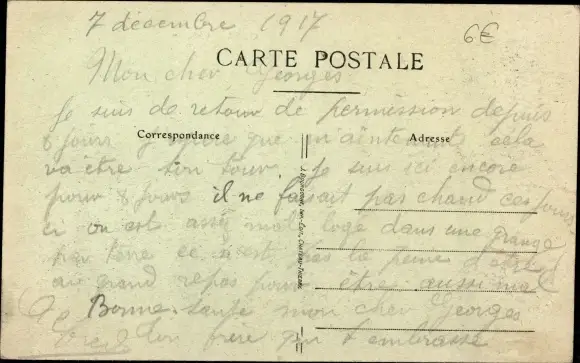 7 décembre 1917
6€
CARTE POSTALE
Mon cher Georges
Je suis de retour de permission depuis
8 jours j'espère que maintenant cela
Correspondance
Adresse
va être ton tour. Je suis ici encore
pour 8 jours il ne faisait pas chaud ces jours
ci on est assez mal logé dans une grange
par terre ce n'est pas la peine d'être
au grand repos pour être aussi mal
Bonne santé mon cher Georges
ton frère qui t'embrasse